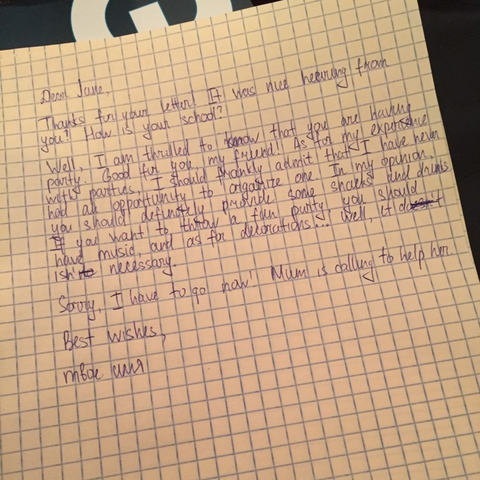 Dear Jane,
Thanks for your letter! It was nice hearing from
you? How is your school?
Well, I am thrilled to know that you are having
party. Good for you, my friend! As for my experience
with parties, I should frankly admit that I have never
had an opportunity to organize one. In my opinion,
you should definitely provide some snacks and drinks
If you want to throw a fun party you should
have music, and as for decorations... Well, it
isn't necessary.
Sorry, I have to go now! Mum is calling to help her.
Best wishes,
твое имя